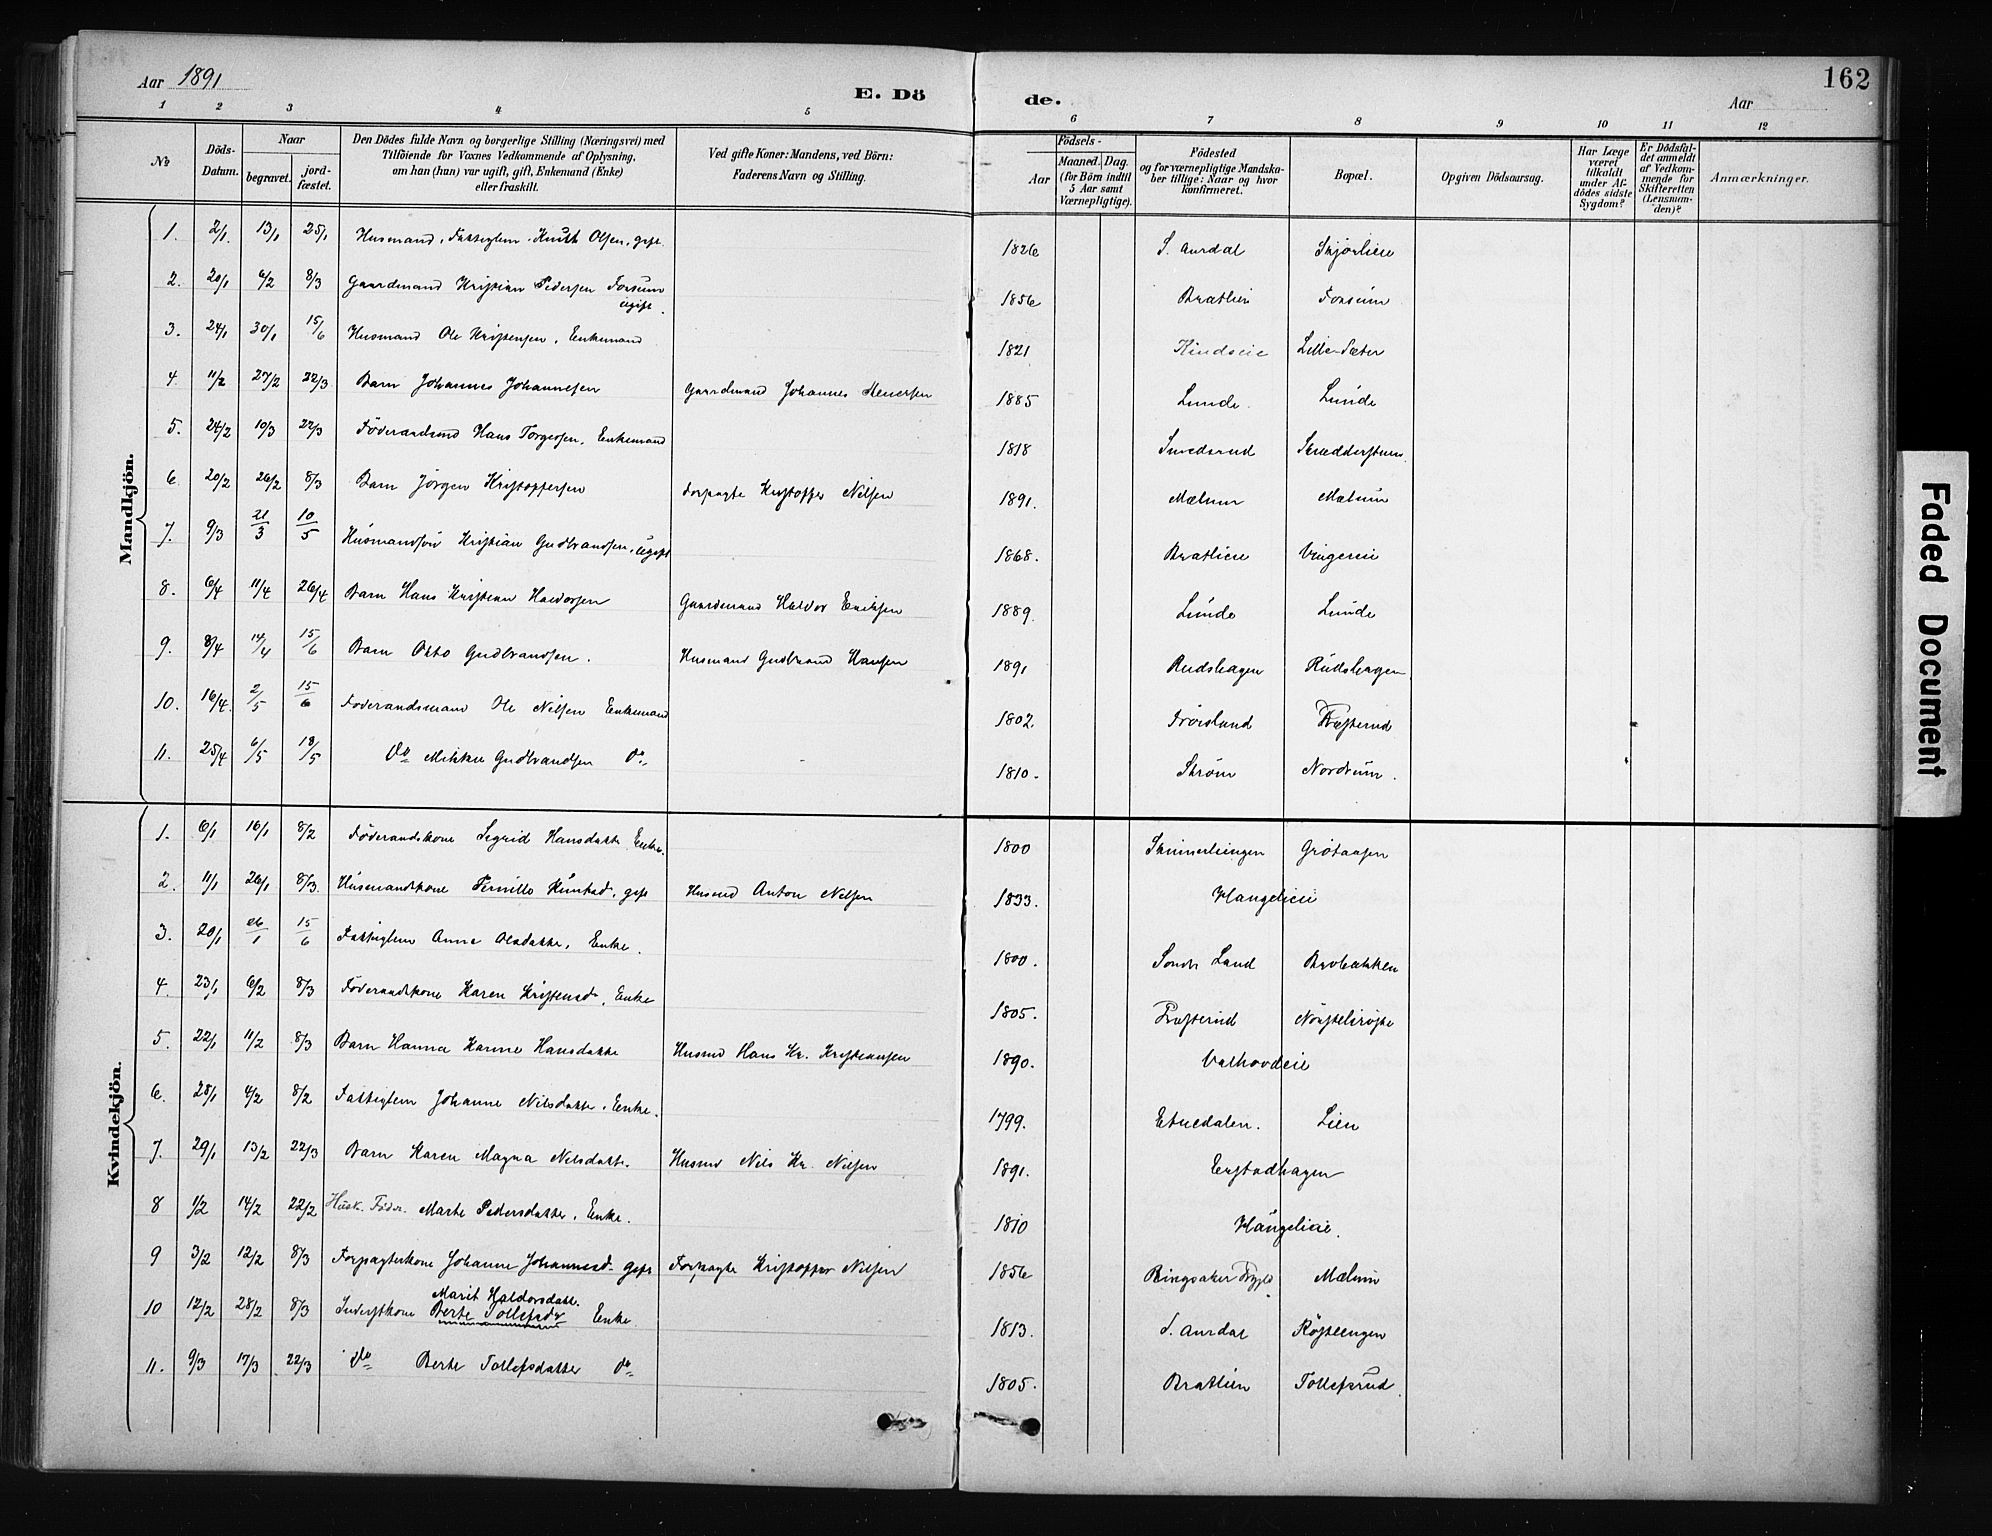 Aar 1891
E. Döde.
Aar
162
1 2 3 4 5 6 7 8 9 10 11 12
No
Döds-Datum.
Naar
begravet.
jordfæstet.
Den Dödes fulde Navn og borgerlige Stilling (Næringsvei) med
Tilföiende for Voxnes Vedkommende af Oplysning,
om han (hun) var ugift, gift, Enkemand (Enke)
eller fraskilt.
Ved gifte Koner: Mandens, ved Börn:
Faderens Navn og Stilling.
Födsels-
Aar
Maaned. Dag.
(for Börn indtil
5 Aar samt
Værnepligtige).
Födested
og for værnepligtige Mandska-
ber tillige: Naar og hvor
konfirmeret.
Bopæl.
Opgiven Dödsaarsag.
Har Læge
været
tilkaldt
under Af-
dödes sidste
Sygdom?
Er Dödsfal-
det anmeldt
af Vedkom-
mende for
Skifteretten
(Lensman-
den)?
Anmærkninger.
Mandkjön.
1. 2/1. 13/1 25/1 Husmand, Fattiglem Knut Olsen, gift. 1826 S. Aurdal
2. 20/1 6/2 8/3 Gaardmand Kristian Pedersen Fossum ugift. 1856 Bratlien Fossum
3. 24/1 30/1 15/6 Husmand Ole Kristensen, Enkemand 1821 Lille-Sæter
4. 11/2 27/2 22/3 Barn Johannes Johannesen Gaardmand Johannes Stenersen 1885 Lunde Lunde
5. 24/2 10/3 22/3 Föderaadsmd Hans Torgersen, Enkemand 1818 Smedsrud
6. 20/2 26/2 8/3 Barn Jörgen Kristoffersen Forpagte Kristoffer Nilsen 1891. Mælum Mælum
7. 9/3 21/3 10/5 Husmandssön Kristian Gudbrandsen, ugift 1868. Bratlien
8. 6/4 11/4 26/4 Barn Hans Kristian Haldorsen Gaardmand Haldor Eriksen 1889. Lunde Lunde
9. 8/4 14/4 15/6 Barn Otto Gudbrandsen. Husmand Gudbrand Hansen 1891 Rudshagen Rudshagen
10. 16/4. 2/5 15/6 Föderaadsmand Ole Nilsen Enkemand 1802. Fröisland Præsterud
11. 25/4 6/5 18/5 Do Mikkel Gudbrandsen Do 1810. Ström Nordrum.
Kvindekjön.
1. 6/1 16/1 8/2 Föderaadskone Sigrid Hansdatte, Enke. 1800 Grötaasen
2. 11/1 26/1 8/3. Husmandskone Pernille Knutsd, gift Husmd Anton Nilsen 1833. Haugelieie
3. 20/1 26/1 15/6 Fattiglem Anne Olsdatte, Enke. 1800. Söndr Land Brobakken
4. 23/1 6/2 8/3 Föderaadskone Karen Kristensd, Enke 1805. Præsterud
5. 22/1 11/2 8/3 Barn Hanna Karine Hansdatte Husmd Hans Kr. Kristiansen 1890. Valhovdeie
6. 28/1 4/2 8/2 Fattiglem Johanne Nilsdatte, Enke. 1799. Etnedalen. Lien
7. 29/1 13/2 22/3 Barn Karen Magna Nilsdatte. Husmd Nils Kr. Nilsen 1891. Engstadhagen
8 1/2 14/2 22/2 Husk. Föder. Marte Pedersdatte, Enke. 1810 Haugelieie.
9 3/2 12/2 8/3 Forpagterkone Johanne Johannesd. gift Forpagte Kristoffer Nilsen 1856 Ringsaker Mælum
10 12/2 28/2 8/3 Inderstkone Marit Haldorsdatt. Berte Tollefsdtr Enke 1813. S. Aurdal Röstlengen
11. 9/3 17/3 22/3 Do Berte Tollefsdatter Do 1805. Bratlien Tollefsrud.
Faded Document